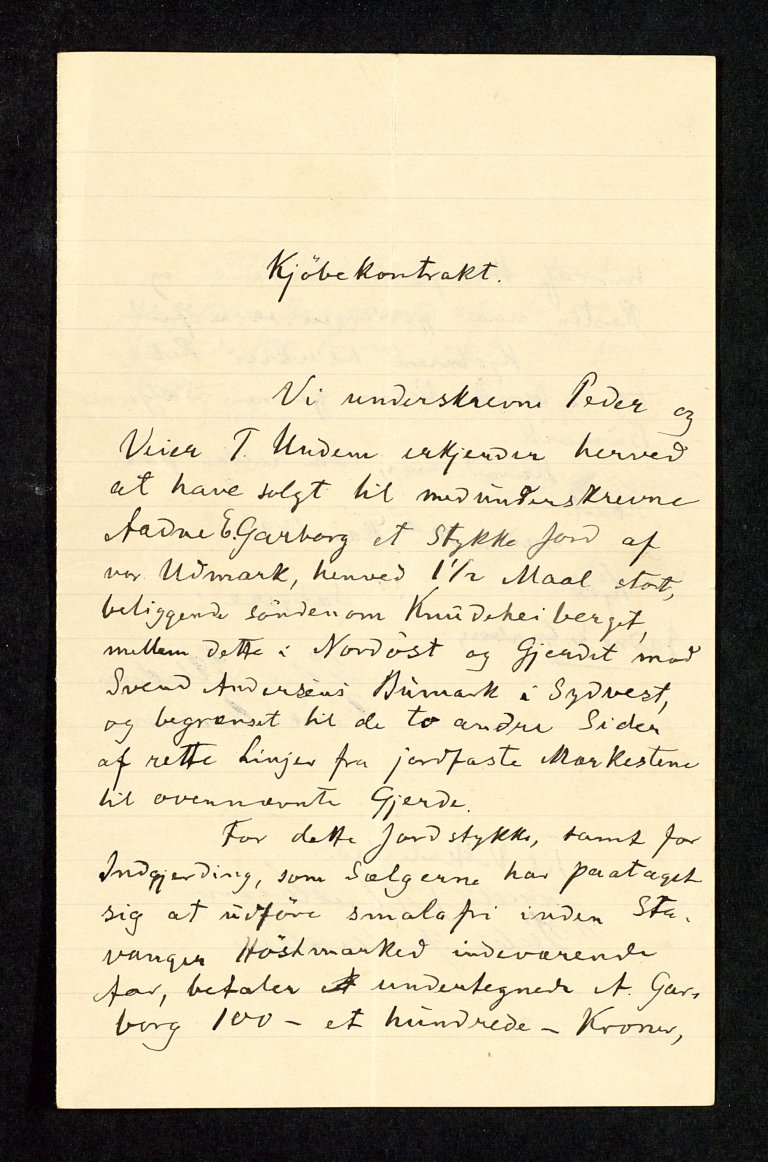 Kjöbekontrakt.
Vi underskrevne Peder og
Veier T. Undem erkjender herved
at have solgt til medünderskrevne
Aadne E. Garborg et Stykke Jord af
vor Udmark, henved 1 1/2 Maal stort,
beliggende söndenom Knudehei berget,
mellem dette i Nordöst og Gjerdet mod
Svend Andersens Bümark i Sydvest,
og begrænset til de to andre Sider
af rette Linjer fra jordfaste Mærkestene
til ovennævnte Gjerde.
For dette Jordstykke, samt for
Indgjerding, som Sælgerne har paataget
sig at üdföre smalafri inden Sta-
vanger Höstmarked indeværende
Aar, betaler undertegnede A. Gar-
borg 100 – et hundrede – Kroner,